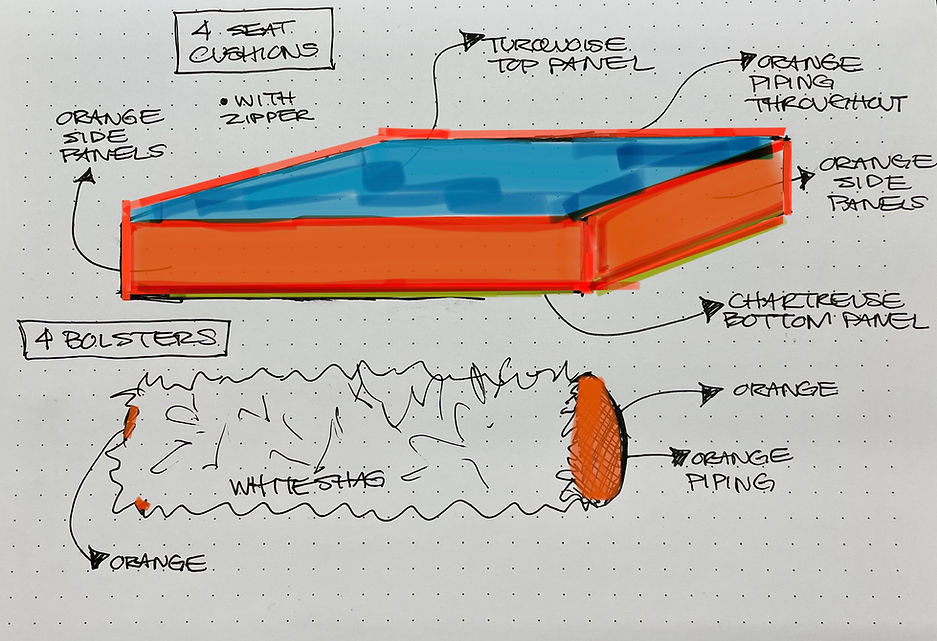 4 SEAT
CUSHIONS
• WITH
ZIPPER
TURQUOISE
TOP PANEL
ORANGE
PIPING
THROUGHOUT
ORANGE
SIDE
PANELS
ORANGE
SIDE
PANELS
CHARTREUSE
BOTTOM PANEL
4 BOLSTERS
ORANGE
ORANGE
PIPING
WHITE SHAG
ORANGE